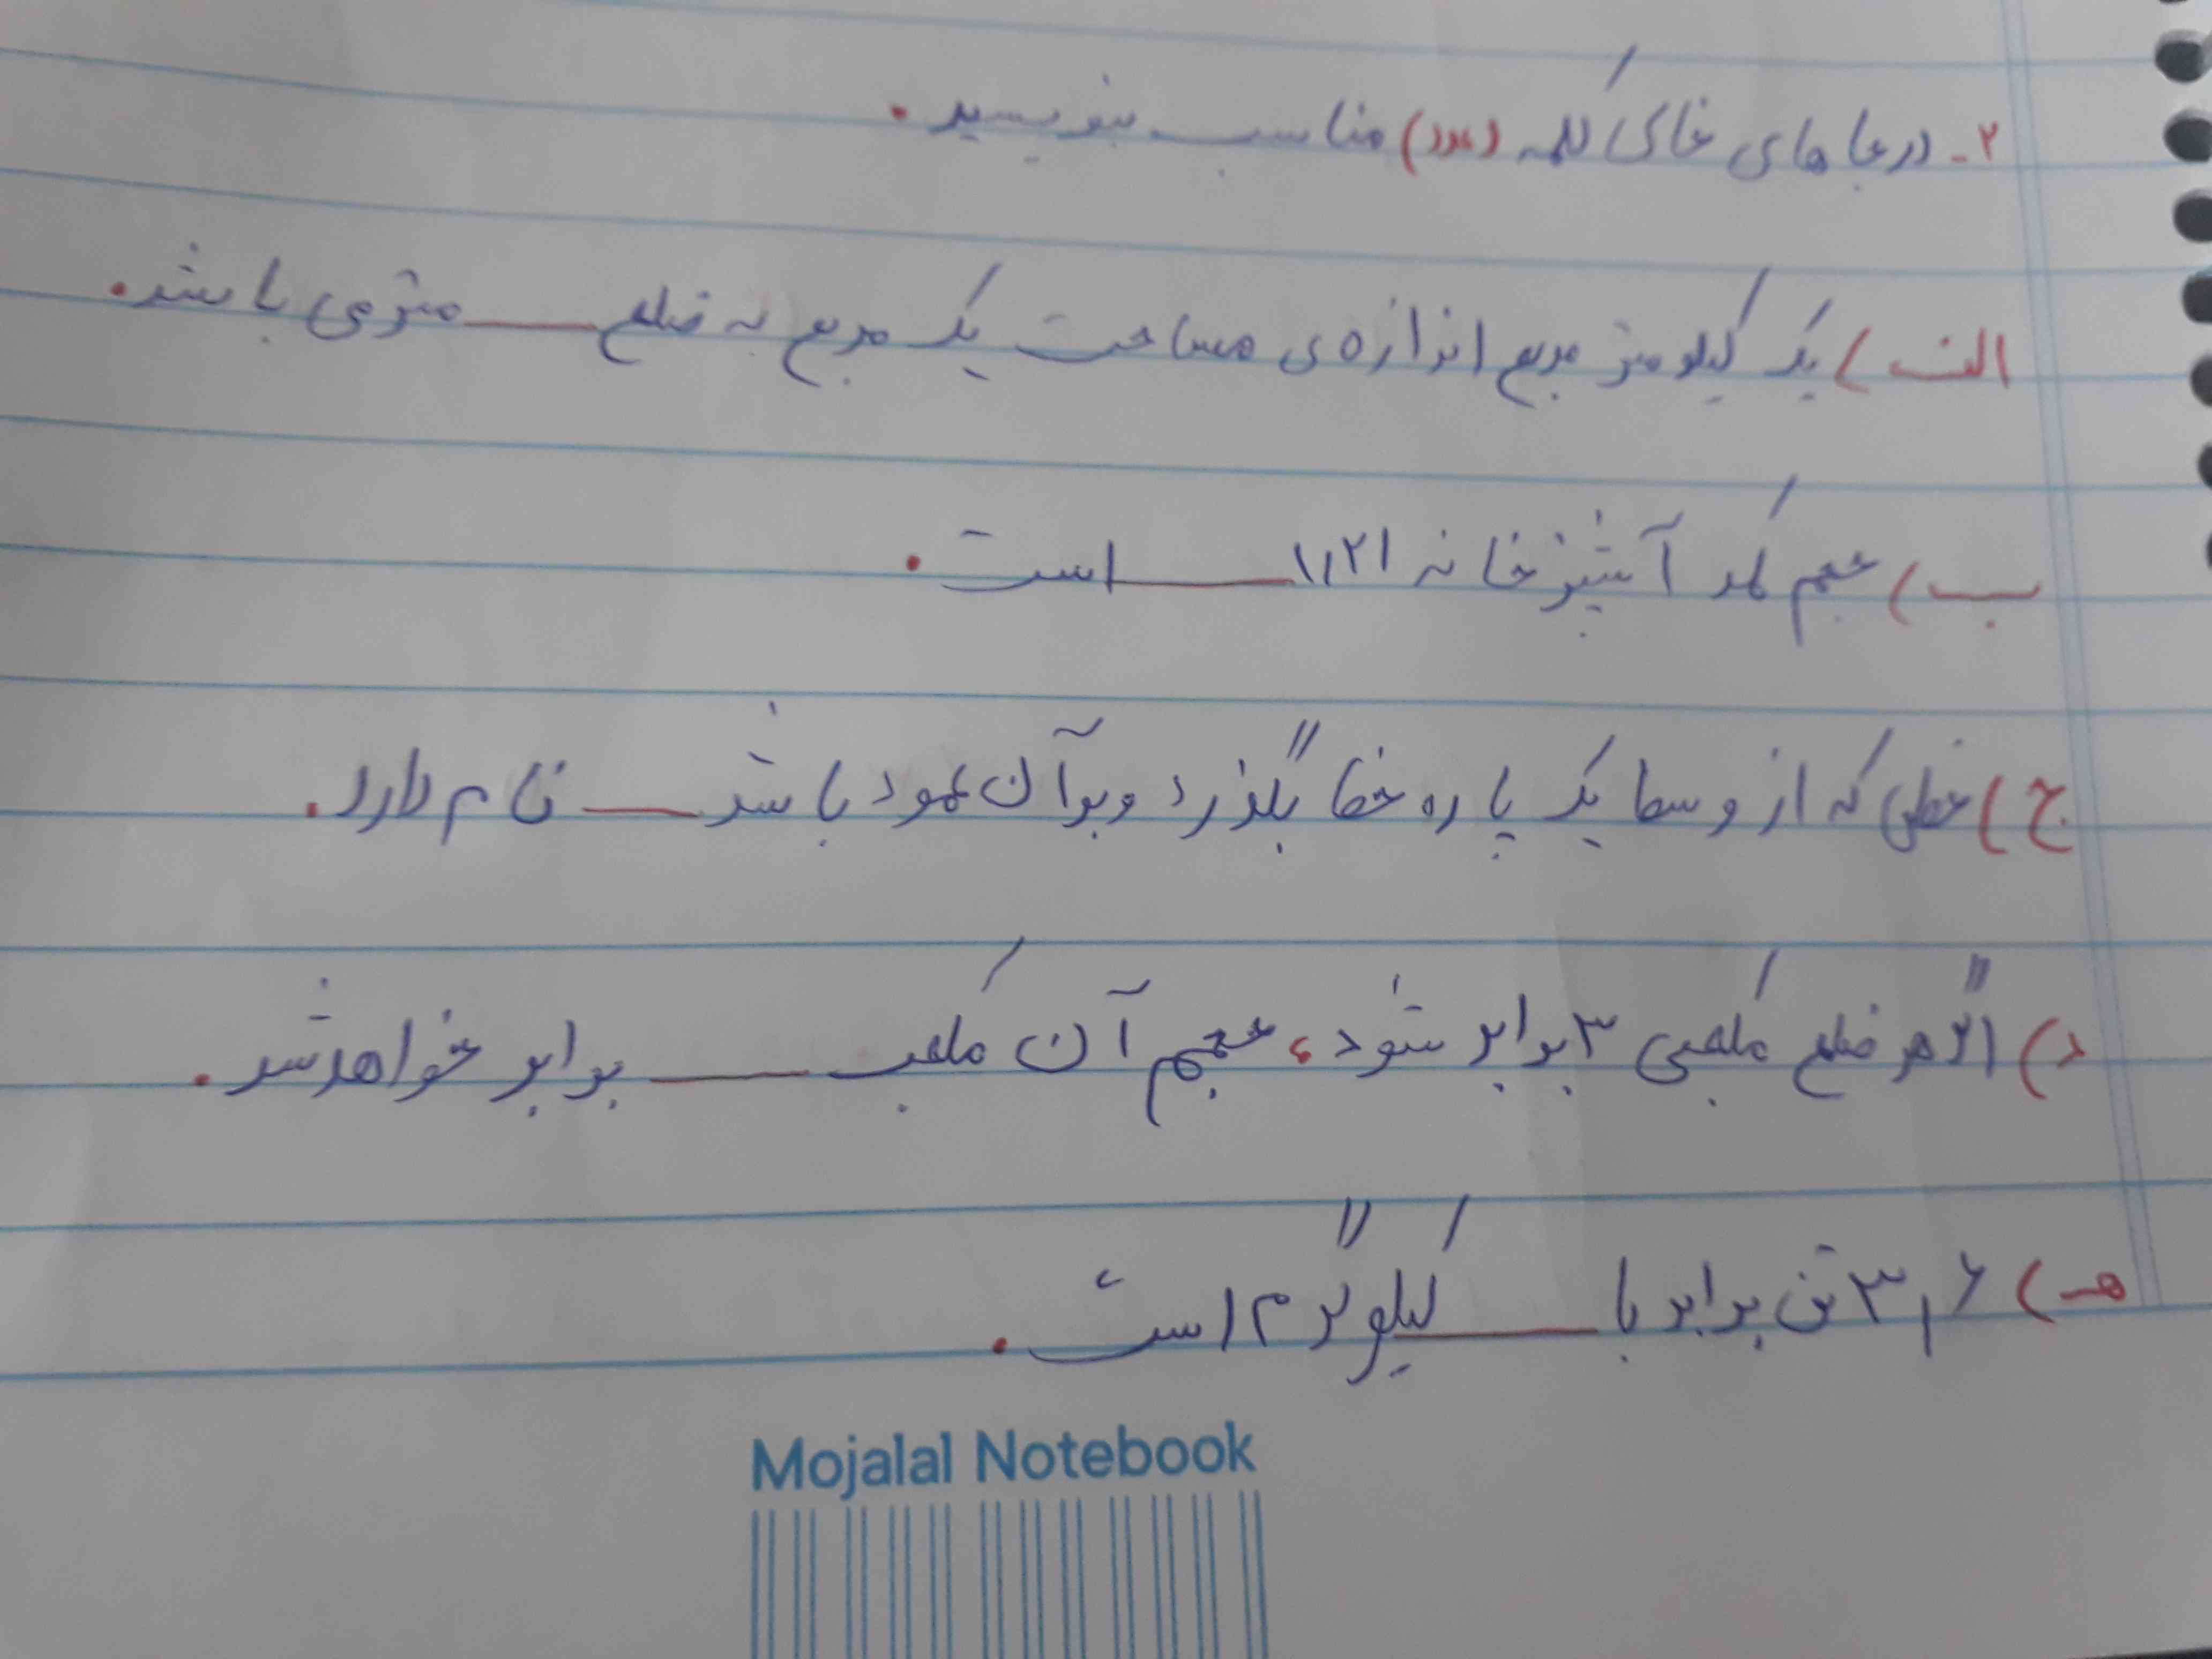 ۲- در جاهای خالی کلمه (عدد) مناسب بنویسید.
الف) یک کیلومتر مربع اندازه‌ی مساحت یک مربع به ضلع ــــــ متر می باشد.
ب) حجم کمد آشپزخانه ۱٫۲۱ ــــــ است.
ج) خطی که از وسط یک پاره خط بگذرد و بر آن عمود باشد ــــــ نام دارد.
د) اگر هر ضلع مکعبی ۳ برابر شود، حجم آن مکعب ــــــ برابر خواهد شد.
هـ) ۳٫۶ تن برابر با ــــــ کیلوگرم است.
Mojalal Notebook